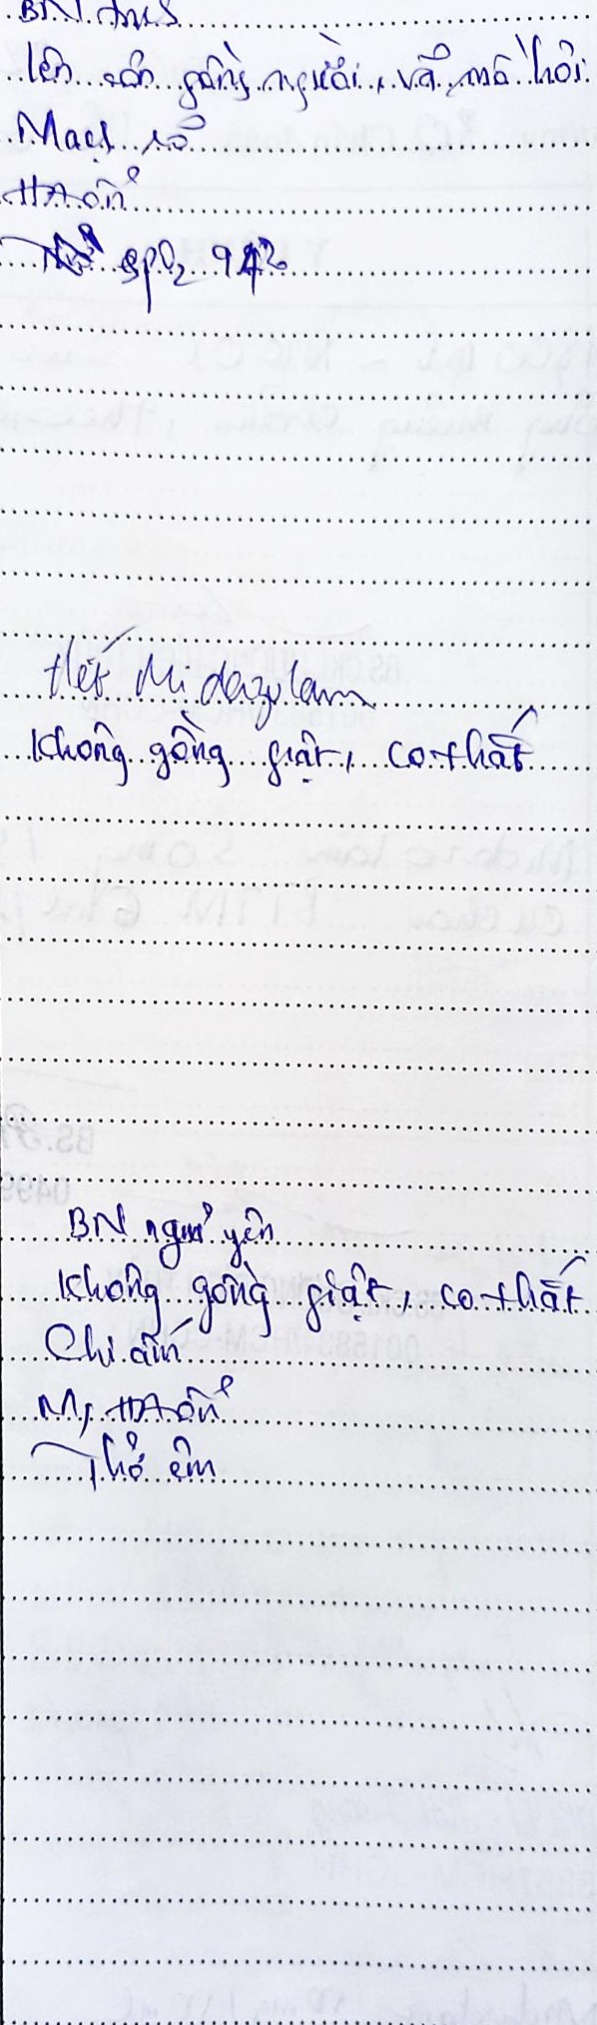 BN
lên cơn gồng người, vã mồ hôi
Mạch rõ
HA ổn
SpO2 94%
Hết Midazolam
Không gồng giật, co thắt
BN ngủ yên
Không gồng giật, co thắt
Chi ấm
M, HA ổn
Thở êm